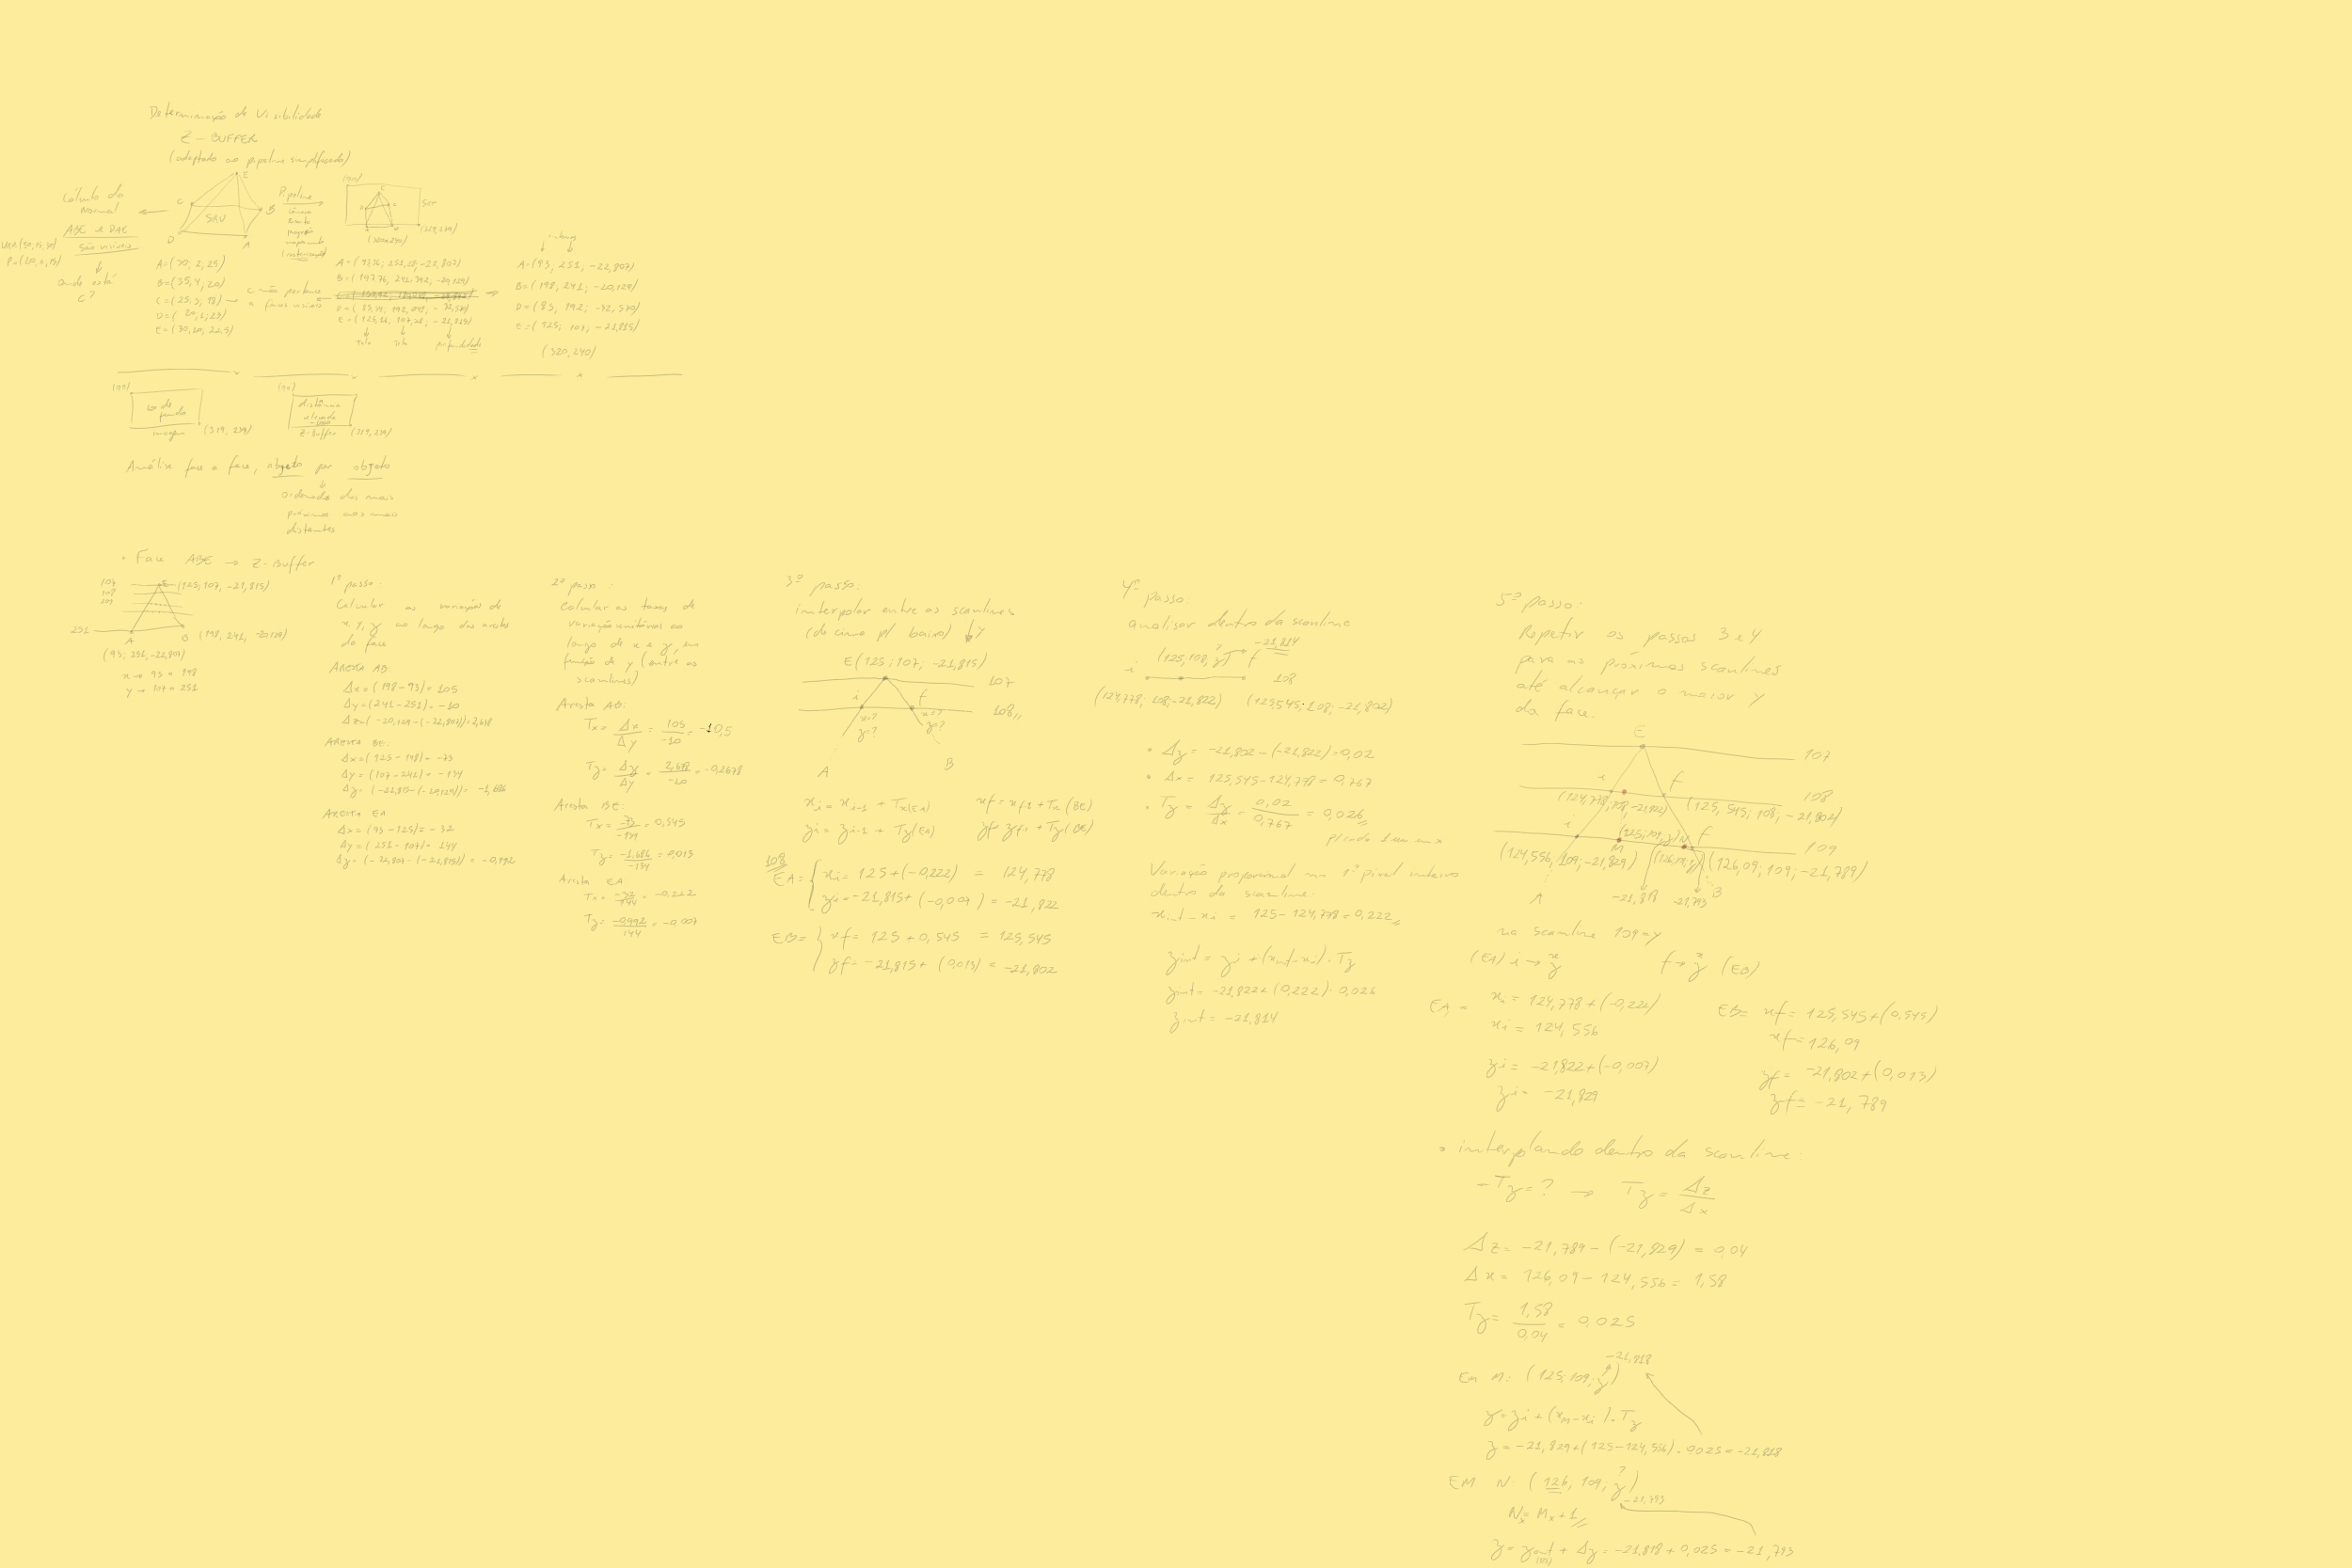 Determinação de Visibilidade
Z-BUFFER
(adaptado ao pipeline simplificado)
Cálculo da
Normal
ABE e DAE
são visíveis
onde está
C?
E
C
B
SRU
D
A
A=(30, 2, 25)
B=(35, 4, 20)
C=(25, 3, 18)
E=(30, 20, 22,5)
C não pertence
a faces visíveis
Pipeline
(0,0)
SRT
(319,239)
(320x240)
B=(197,76; 241,392; -20,129)
tela
tela
profundidade
inteiros
A=(93, 251, -22,807)
B=(198, 241, -20,129)
D=(83, 192, -32,570)
E=(125, 107, -21,815)
(320,240)
(0,0)
cor de
fundo
imagem
(319, 239)
(0,0)
distância
elevada
Z-Buffer
(319,239)
Análise face a face, objeto por objeto
ordenado dos mais
próximos aos mais
distantes
• Face ABE → Z-Buffer
107
108
109
E
(125; 107; -21,815)
251
A
B
(198, 241, -20,129)
(93; 251; -22,807)
x → 93 a 198
y → 107 a 251
1º passo:
Calcular as variações de
x, y, z ao longo das arestas
da face
ARESTA AB:
Δx=(198-93)= 105
Δy=(241-251)=-10
Δz=(-20,129-(-22,807))=2,678
ARESTA BE:
Δx=(125-198)=-73
Δy=(107-241)=-134
Δz=(-21,815-(-20,129))=-1,686
ARESTA EA
Δx=(93-125)=-32
Δy=(251-107)=144
Δz=(-22,807-(-21,815))=-0,992
2º passo:
Calcular as taxas de
variação unitárias ao
longo de x e z, em
função de y (entre as
scanlines)
Aresta AB:
Tx= Δx/Δy = 105/-10 = -10,5
Tz= Δz/Δy = 2,678/-10 = -0,2678
Aresta BE:
Tx= -73/-134 = 0,545
Tz= -1,686/-134 = 0,013
Aresta EA
Tx= -32/144 = -0,222
Tz= -0,992/144 = -0,007
3º passo:
interpolar entre as scanlines
(de cima p/ baixo) ↓y
E(125; 107; -21,815)
107
i
f
108
x=?
z=?
x=?
z=?
A
B
xi= xi-1 + Tx(EA)
xf= xf-1 + Tx(BE)
zi= zi-1 + Tz(EA)
zf= zf-1 + Tz(BE)
108
EA= { xi= 125+(-0,222) = 124,778
zi=-21,815+(-0,007) = -21,822
EB= { xf= 125+0,545 = 125,545
zf=-21,815+ (0,013) = -21,802
4º passo:
analisar dentro da scanline
-21,814
(125;108; z)
?
i
f
108
(124,778; 108;-21,822)
(125,545; 108; -21,802)
• Δz= -21,802-(-21,822)=0,02
• Δx= 125,545-124,778=0,767
• Tz= Δz/Δx = 0,02/0,767 = 0,026
p/ cada 1 un em x
Variação proporcional no 1º pixel inteiro
dentro da scanline:
xint-xi = 125-124,778=0,222
zint= zi+(xint-xi).Tz
zint= -21,822+(0,222).0,026
zint= -21,814
5º passo:
Repetir os passos 3 e 4
para as próximas scanlines
até alcançar o maior y
da face.
E
107
i
f
108
(124,778;108;-21,822)
(125,545; 108; -21,802)
i
(125;109;z)
N
f
109
M
(124,556; 109;-21,829)
(126;109;z)
(126,09; 109; -21,789)
A
-21,818
-21,793
B
na scanline 109=y
(EA) i→ x z
f→ x z (EB)
EA= xi= 124,778+(-0,222)
xi= 124,556
zi= -21,822+(-0,007)
zi= -21,829
EB= xf= 125,545+(0,545)
xf=126,09
zf= -21,802+(0,013)
zf= -21,789
• interplando dentro da scanline:
-Tz=? → Tz= Δz/Δx
Δz= -21,789-(-21,829) = 0,04
Δx= 126,09-124,556= 1,58
Tz= 1,58/0,04 = 0,025
-21,818
Em M: (125;109;z)
z=zi+(xM-xi).Tz
z=-21,829+(125-124,556).0,025=-21,818
EM N: (126, 109; z)
?
-21,793
Nx= Mx+1
z= zint(M) + Δz= -21,818+0,025=-21,793